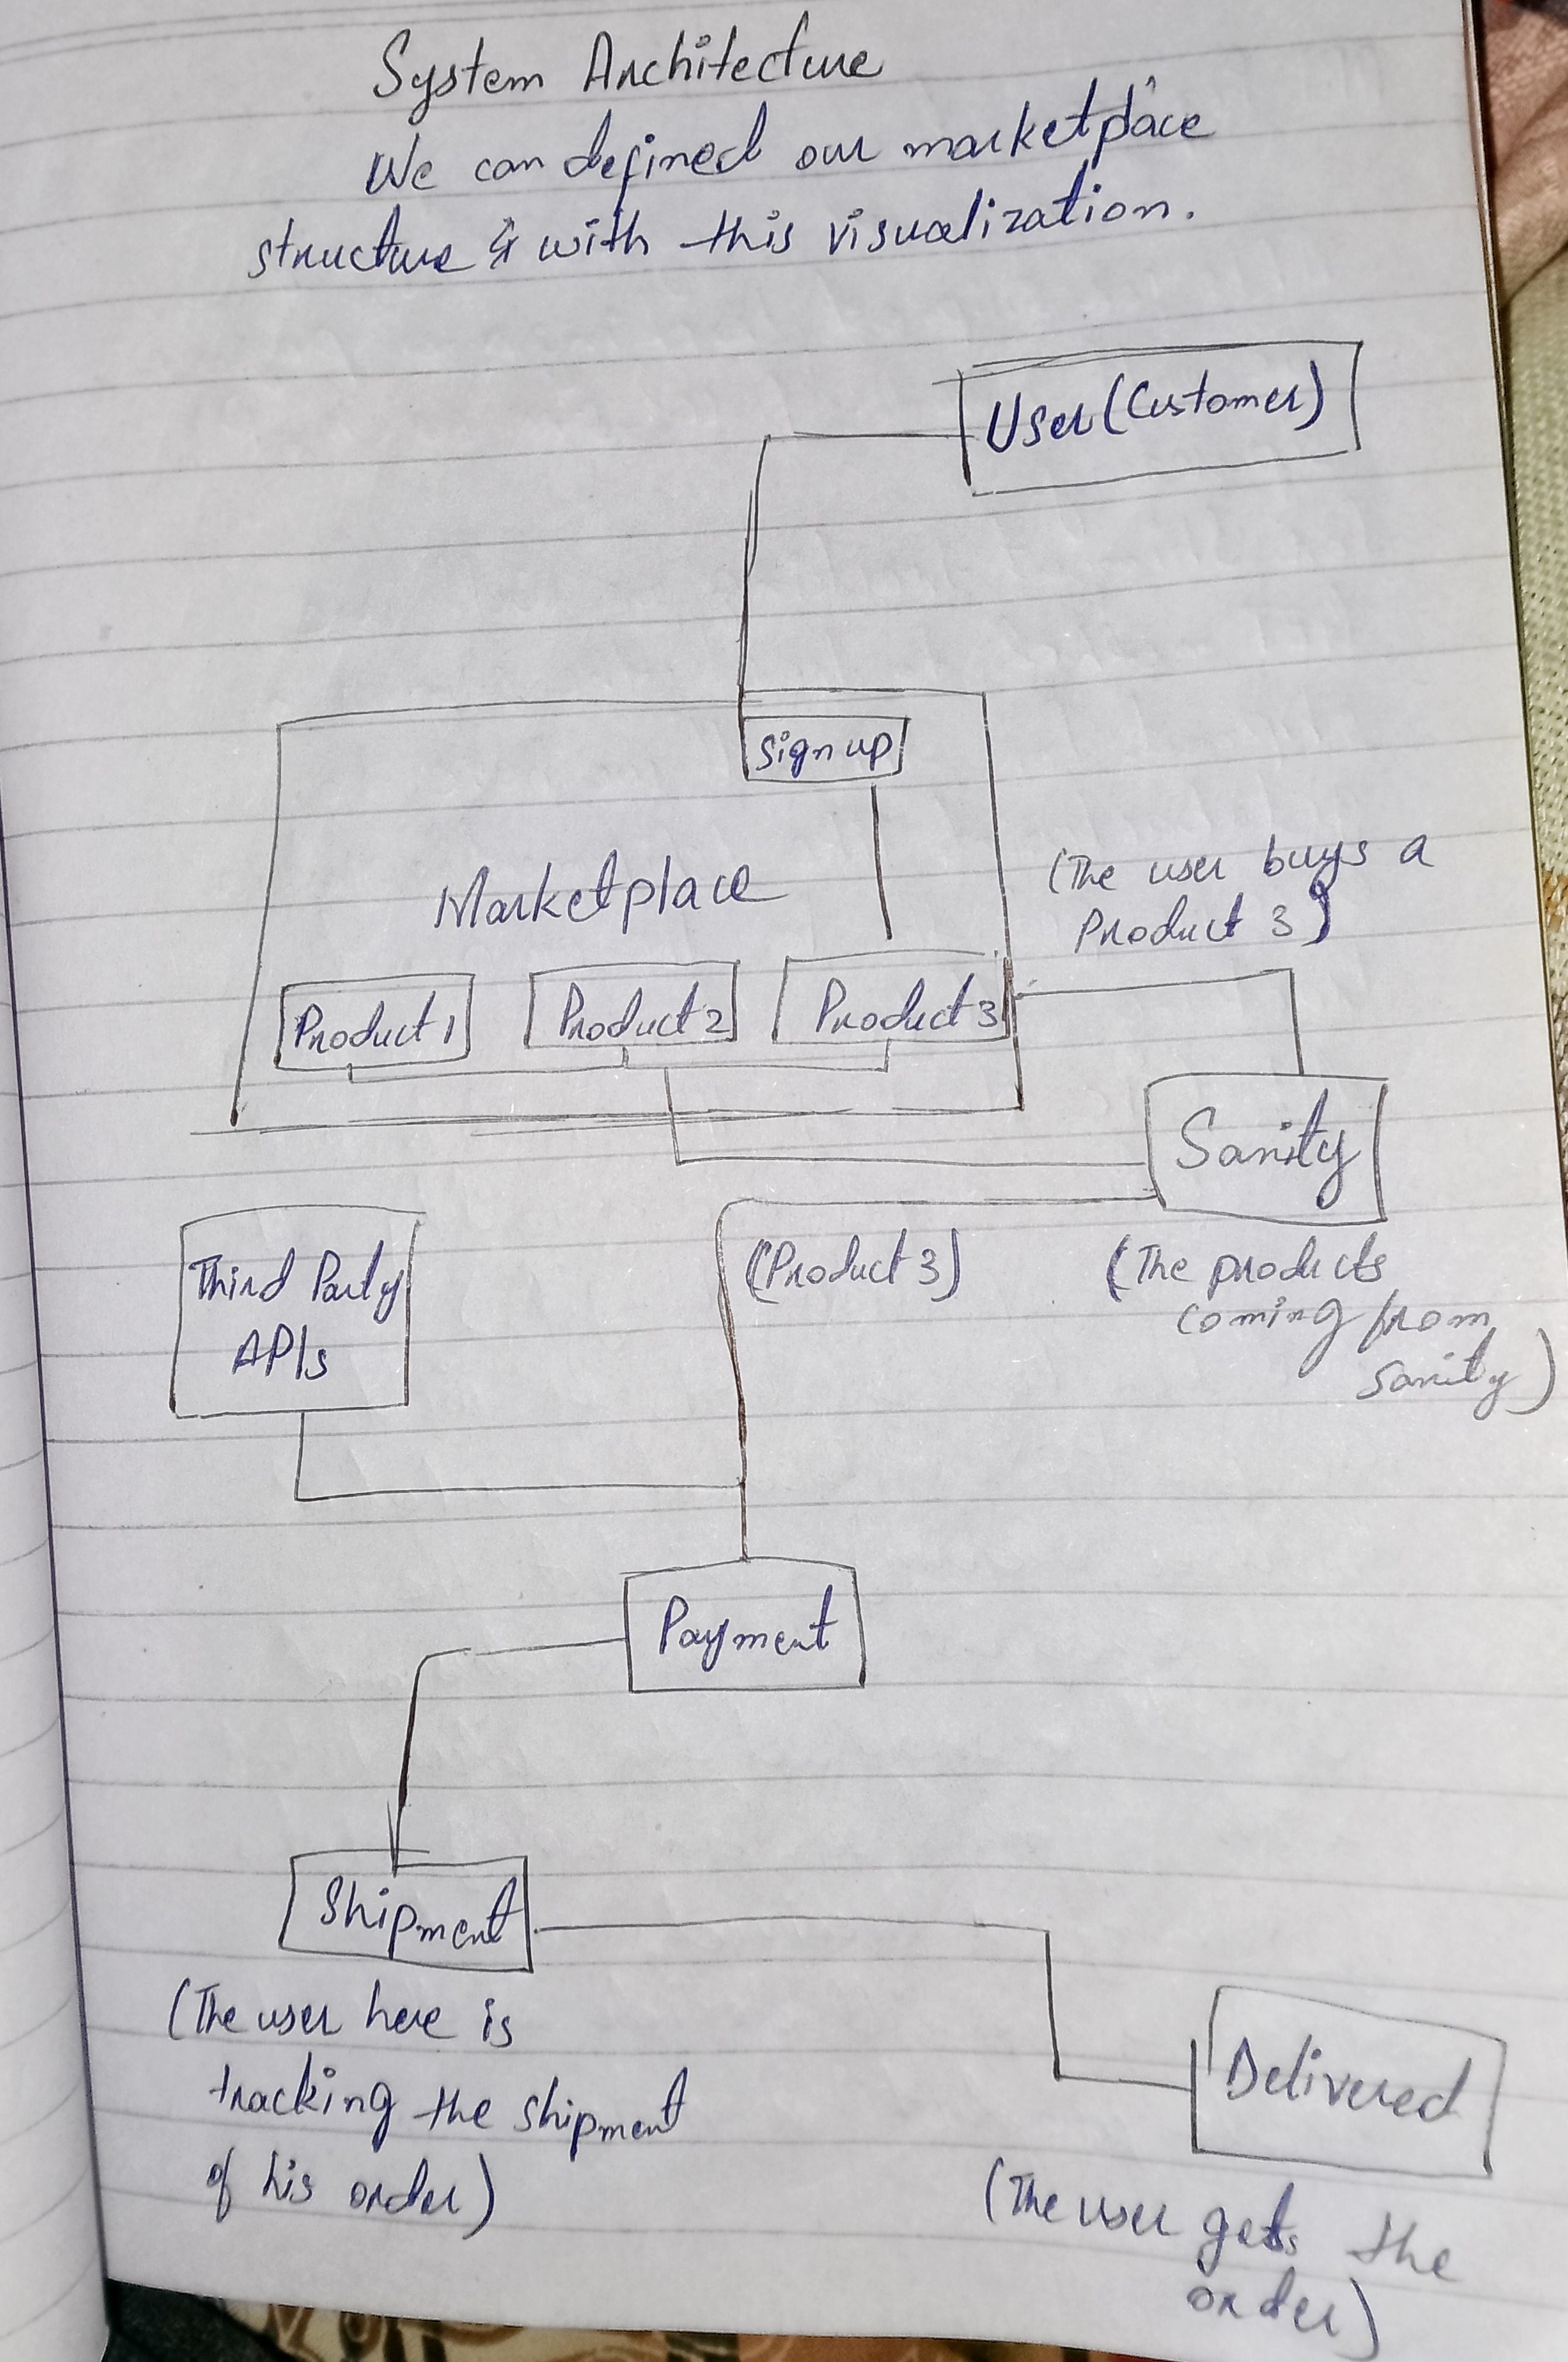 System Architecture
We can defined our marketplace
structure with this visualization.
User (Customer)
Sign up
Marketplace
(The user buys a
Product 3)
Product 1
Product 2
Product 3
Sanity
(The products
coming from
sanity)
(Product 3)
Third Party
APIs
Payment
Shipment
(The user here is
tracking the shipment
of his order)
Delivered
(The user gets the
order)